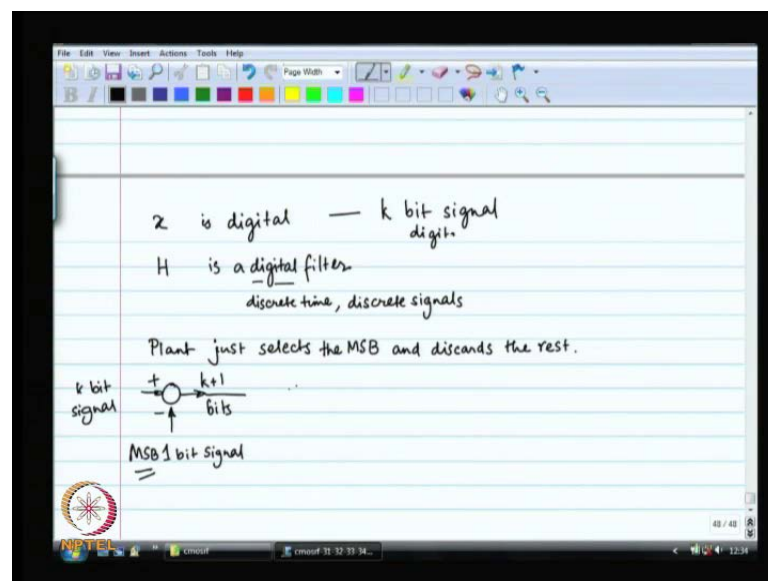 File Edit View Insert Actions Tools Help
Page Width
B I
x is digital — k bit signal
digit.
H is a digital filter
discrete time, discrete signals
Plant just selects the MSB and discards the rest.
k bit signal
+ k+1 bits
−
MSB 1 bit signal
48 / 48
NPTEL
cmosrf
cmosrf-31-32-33-34...
12:34